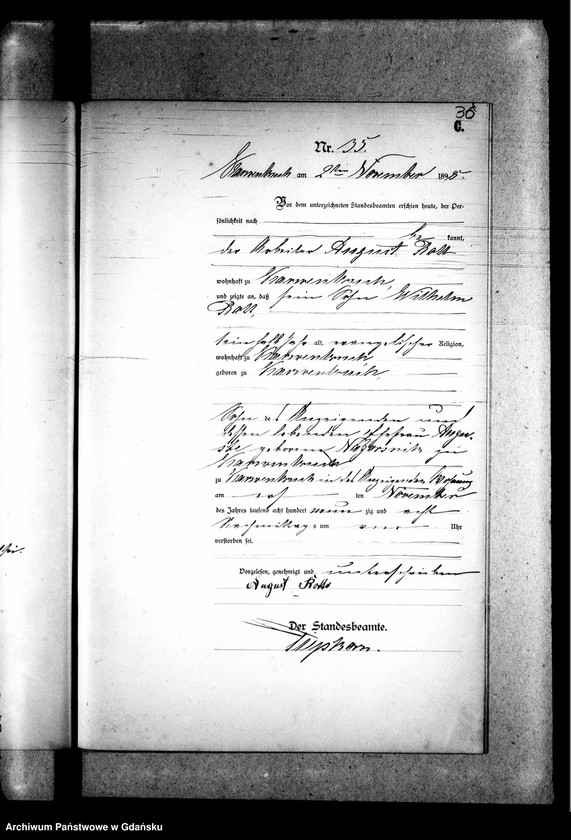 36
C.
Nr. 35.
Karwenbruch am 2ten November 1898.
Vor dem unterzeichneten Standesbeamten erschien heute, der Per-
sönlichkeit nach
be kannt,
der Arbeiter August Roll
wohnhaft zu Karwenbruch,
und zeigte an, daß sein Sohn Wilhelm
Roll,
alt, evangelischer Religion,
wohnhaft zu Karwenbruch
geboren zu Karwenbruch,
Sohn des Anzeigenden und
dessen lebenden Ehefrau
geborene zu
Karwenbruch
zu Karwenbruch in des Anzeigenden Wohnung
am ten November
des Jahres tausend acht hundert neun zig und acht
Nachmittags um Uhr
verstorben sei.
Vorgelesen, genehmigt und unterschrieben
August Rolls
Der Standesbeamte.
Archiwum Państwowe w Gdańsku